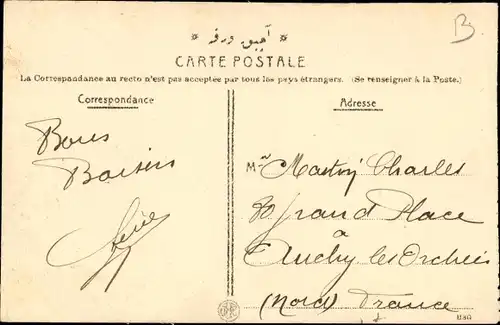 B
آچیق ورقه
CARTE POSTALE
La Correspondance au recto n'est pas acceptée par tous les pays étrangers. (Se renseigner à la Poste.)
Correspondance
Bons
Baisers
Adresse
Charles
Grand Place
à
Auchy les Orchies
(Nord) France